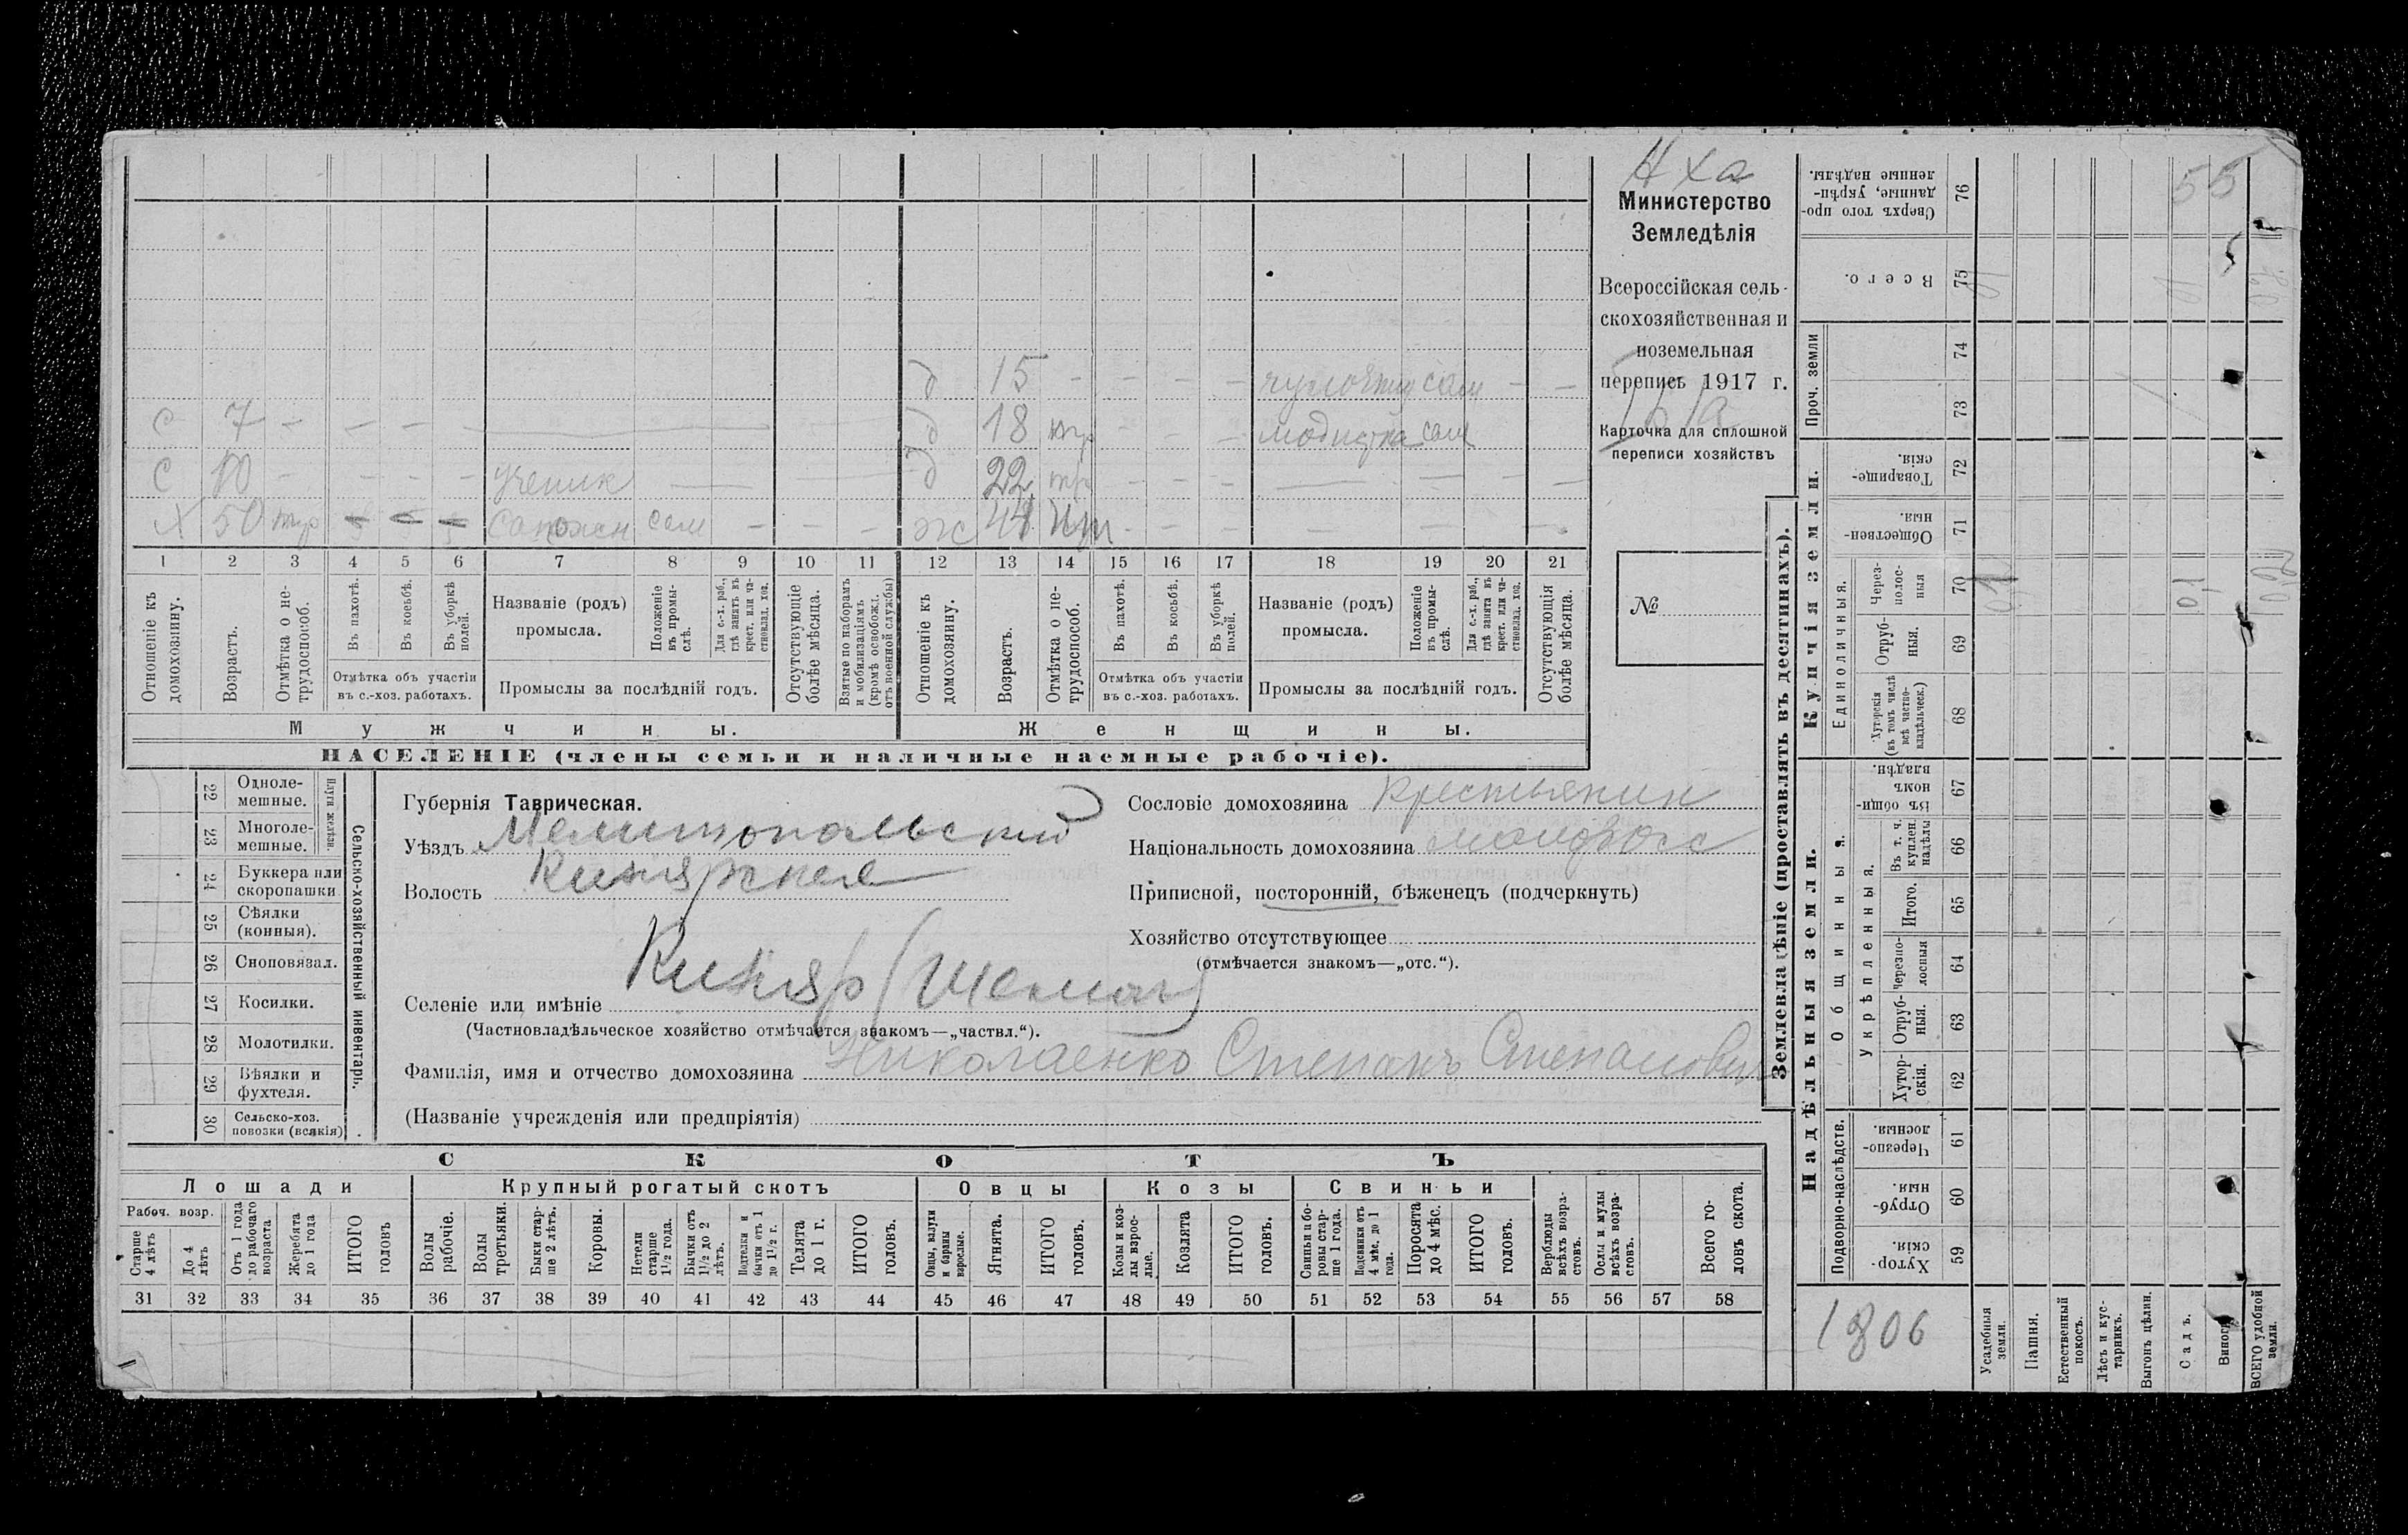 Министерство
Земледѣлія
Всероссійская сель-
скохозяйственная и
поземельная
перепись 1917 г.
Карточка для сплошной
переписи хозяйствъ
№
д 15 - - - - сам - -
с 7 - - - - д 18 - - - модистка сам
с 10 - - - - ученик д 22 тр - - - - - - -
х 50 тр сапожн сам - - - ж 48 - - - - - - -
1 2 3 4 5 6 7 8 9 10 11 12 13 14 15 16 17 18 19 20 21
Отношеніе къ домохозяину.
Возрастъ.
Отмѣтка о не-трудоспособ.
Въ пахотѣ.
Въ косьбѣ.
Въ уборкѣ полей.
Отмѣтка объ участіи
въ с.-хоз. работахъ.
Названіе (родъ)
промысла.
Положеніе въ промы-слѣ.
Для с.-х. раб., гдѣ занятъ въ крест. или ча-стновлад. хоз.
Промыслы за послѣдній годъ.
Отсутствующіе болѣе мѣсяца.
Взятые по наборамъ и мобилизаціямъ (кромѣ освобожд. отъ военной службы)
Отношеніе къ домохозяину.
Возрастъ.
Отмѣтка о не-трудоспособ.
Въ пахотѣ.
Въ косьбѣ.
Въ уборкѣ полей.
Отмѣтка объ участіи
въ с.-хоз. работахъ.
Названіе (родъ)
промысла.
Положеніе въ промы-слѣ.
Для с.-х. раб., гдѣ занята въ крест. или ча-стновлад. хоз.
Промыслы за послѣдній годъ.
Отсутствующія болѣе мѣсяца.
Мужчины.
Женщины.
НАСЕЛЕНІЕ (члены семьи и наличные наемные рабочіе).
Сельско-хозяйственный инвентарь.
Плуги желѣзн.
22 Одноле-мешные.
23 Многоле-мешные.
24 Буккера или скоропашки
25 Сѣялки (конныя).
26 Сноповязал.
27 Косилки.
28 Молотилки.
29 Вѣялки и фухтеля.
30 Сельско-хоз. повозки (всякія)
Губернія Таврическая.
Уѣздъ Мелитопольский
Волость Кизиярская
Селеніе или имѣніе Кизияр
(Частновладѣльческое хозяйство отмѣчается знакомъ—„частвл.“).
Фамилія, имя и отчество домохозяина Николаенко Степанъ Степанович
(Названіе учрежденія или предпріятія)
Сословіе домохозяина крестьянин
Національность домохозяина малоросс
Приписной, посторонній, бѣженецъ (подчеркнуть)
Хозяйство отсутствующее
(отмѣчается знакомъ—„отс.“).
СКОТЪ
Лошади
Крупный рогатый скотъ
Овцы
Козы
Свиньи
Рабоч. возр.
Старше 4 лѣтъ
До 4 лѣтъ
Отъ 1 года до рабочаго возраста
Жеребята до 1 года
ИТОГО головъ
Волы рабочіе.
Волы третьяки.
Быки стар-ше 2 лѣтъ.
Коровы.
Нетели старше 1½ года.
Бычки отъ 1½ до 2 лѣтъ.
Подтелки и бычки отъ 1 до 1½ г.
Телята до 1 г.
ИТОГО головъ.
Овцы, валухи и бараны взрослые.
Ягнята.
ИТОГО головъ.
Козы и коз-лы взрос-лые.
Козлята
ИТОГО головъ.
Свиньи и бо-ровы стар-ше 1 года.
Подсвинки отъ 4 мѣс. до 1 года.
Поросята до 4 мѣс.
ИТОГО головъ.
Верблюды всѣхъ возра-стовъ.
Ослы и мулы всѣхъ возра-стовъ.
Всего го-ловъ скота.
31 32 33 34 35 36 37 38 39 40 41 42 43 44 45 46 47 48 49 50 51 52 53 54 55 56 57 58
Землевладѣніе (проставлять въ десятинахъ).
Надѣльныя земли.
Купчія земли.
Проч. земли
Подворно-наслѣдств.
Общинныя.
Укрѣпленныя.
Единоличныя.
Сверхъ того про-данные, укрѣп-ленные надѣлы. 76
Всего. 75
74
73
Товарище-скія. 72
Обществен-ныя. 71
Через-полос-ныя 70
Отруб-ныя. 69
Хуторскія (въ томъ числѣ всѣ частно-владѣльческ.) 68
Въ общи-номъ владѣн. 67
Въ т. ч. куплен. надѣлы 66
Итого. 65
Черезпо-лосныя 64
Отруб-ныя. 63
Хутор-скія. 62
Черезпо-лосныя. 61
Отруб-ныя. 60
Хутор-скія. 59
55
1806
Усадебныя земли.
Пашня.
Естественный покосъ.
Лѣсъ и кус-тарникъ.
Выгонъ цѣлин.
Садъ.
Виногр.
ВСЕГО удобной земли.